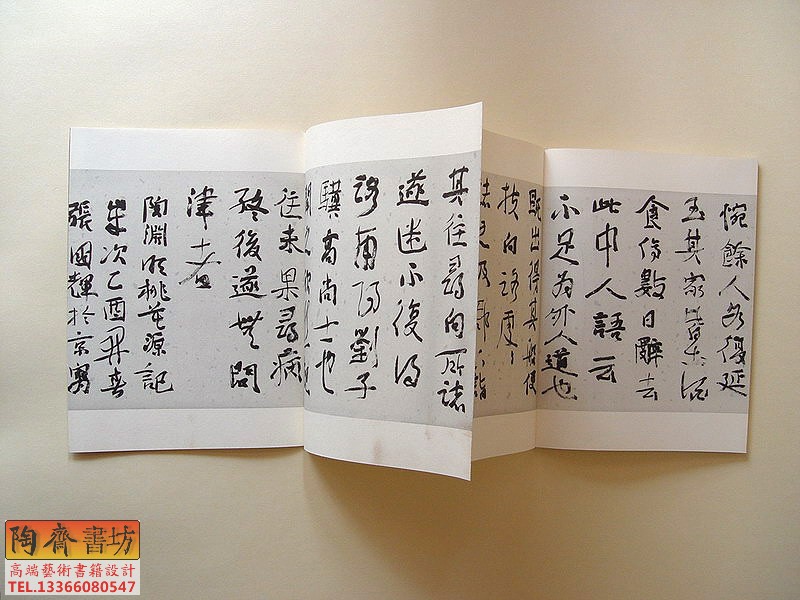 惋餘人各復延
至其家皆出酒
食停數日辭去
此中人語云
不足為外人道也
既出得其船便
扶向路處〻
誌之及郡下詣
其往尋向所誌
遂迷不復得
路南陽劉子
驥高尚士也
往未果尋病
終後遂無問
津者
陶淵明桃花源記
歲次乙酉春
張國輝於京寓
陶齋書坊
高端藝術書籍設計
TEL.13366080547